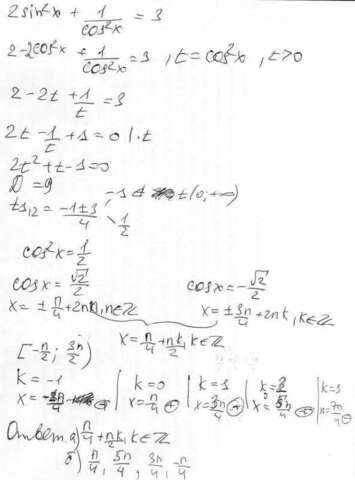 2sin²x + 1/cos²x = 3
2-2cos²x + 1/cos²x = 3, t = cos²x, t>0
2-2t + 1/t = 3
2t - 1/t + 1 = 0 | ·t
2t² + t - 1 = 0
D = 9
t₁,₂ = (-1±3)/4 -1 ∉ t(0;+∞)
1/2
cos²x = 1/2
cosx = √2/2 cosx = -√2/2
x = ± π/4 + 2πn, n∈Z x = ± 3π/4 + 2πk, k∈Z
x = π/4 + πk/2, k∈Z
[-π/2; 3π/2)
k = -1 | k = 0 | k = 1 | k = 2 | k = 3
x = -π/4 ⊕ | x = π/4 ⊕ | x = 3π/4 ⊕ | x = 5π/4 ⊕ | x = 7π/4 ⊖
Ответ: а) π/4 + πk/2, k∈Z
б) π/4, 5π/4, 3π/4, -π/4